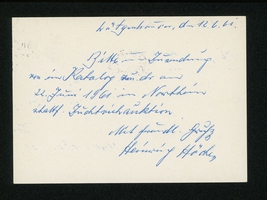 den 12.6.61.
Bitte um Zusendung
von im Katalog zu der am
22. Juni 1961 in Northeim
stattf. Zuchtviehauktion
Mit freundl. Gruß
Heinrich